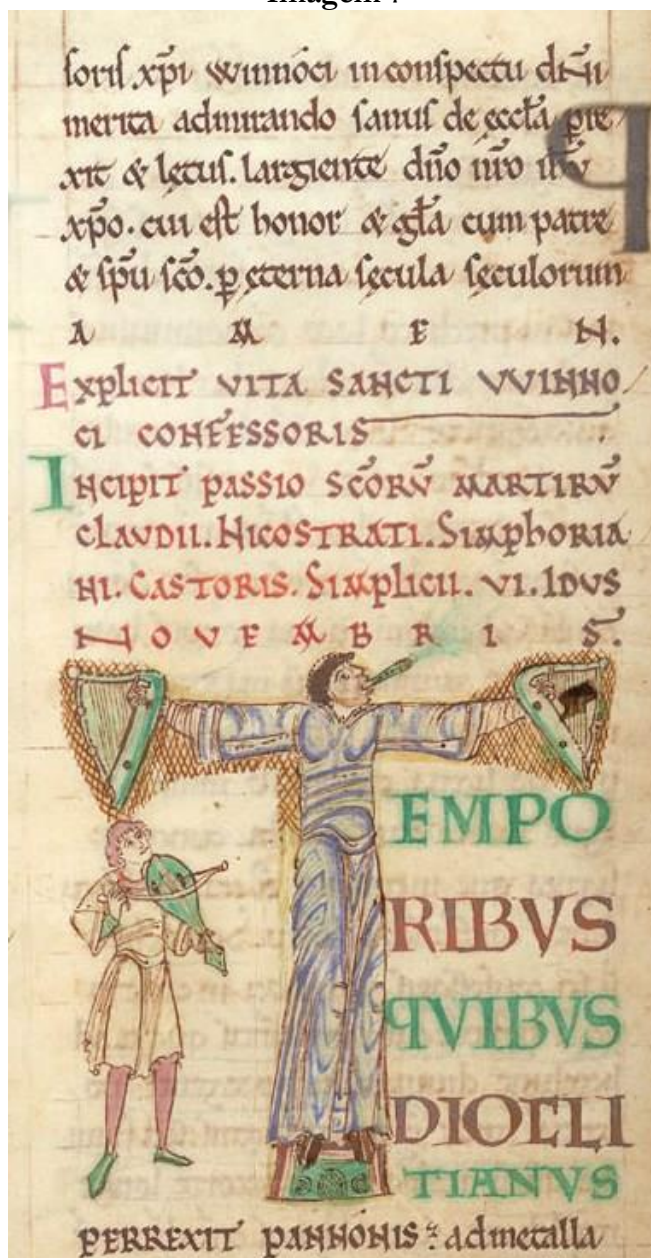 Imagem
ſoriſ xp̄i winnoci in conſpectu dn̄i
merita admirando ſanuſ de eccl̄a ꝑre
xit & lętuſ. largiente dn̄o nr̄o ihū
xp̄o. cui eſt honor & gl̄a cum patre
& ſpū ſc̄o. ꝑ ęterna ſęcula ſęculorum
A M E N.
Explicit VITA SANCTI VVINNO
CI CONFESSORIS
INCIPIT PASSIO SC̄ORV̄ MARTIRV̄
CLAVDII. NICOSTRATI. SIMPhORIA
NI. CASTORIS. SIMPLICII. VI. IDVS
N O V E M B R I S.
TEMPO
RIBVS
QVIBVS
DIOCLI
TIANVS
PERREXIT PANNONIS: ad metalla